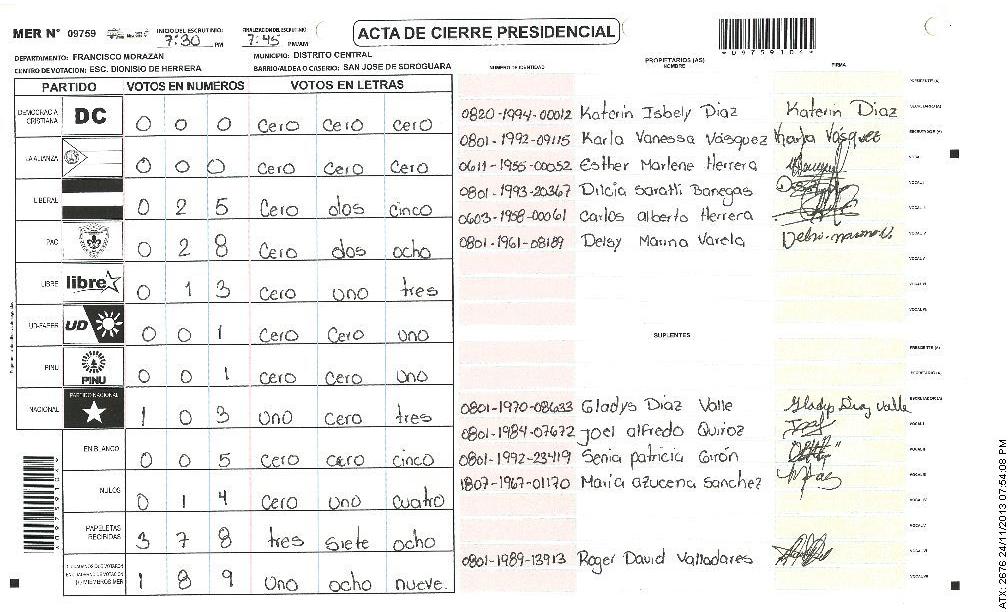 MER N° 09759 INICIO DEL ESCRUTINIO: 7:30 PM FINALIZACION DEL ESCRUTINIO: 7:45 PM/AM
ACTA DE CIERRE PRESIDENCIAL
DEPARTAMENTO: FRANCISCO MORAZAN MUNICIPIO: DISTRITO CENTRAL
CENTRO DE VOTACION: ESC. DIONISIO DE HERRERA BARRIO/ALDEA O CASERIO: SAN JOSE DE SOROGUARA
PARTIDO VOTOS EN NUMEROS VOTOS EN LETRAS
DEMOCRACIA CRISTIANA DC 0 0 0 Cero Cero Cero
LA ALIANZA 0 0 0 Cero Cero Cero
LIBERAL 0 2 5 Cero dos cinco
PAC 0 2 8 Cero dos ocho
LIBRE libre 0 1 3 Cero uno tres
UD-FAPER UD 0 0 1 Cero Cero uno
PINU PINU 0 0 1 Cero Cero uno
NACIONAL PARTIDO NACIONAL 1 0 3 Uno Cero tres
EN BLANCO 0 0 5 Cero cero cinco
NULOS 0 1 4 Cero uno cuatro
PAPELETAS RECIBIDAS 3 7 8 tres siete ocho
1 8 9 Uno ocho nueve.
NUMERO DE IDENTIDAD PROPIETARIOS (AS) NOMBRE FIRMA
0820-1994-00012 Katerin Isbely Diaz Katerin Diaz
0801-1992-09115 Karla Vanessa Vásquez Karla Vásquez
0611-1955-00052 Esther Marlene Herrera
0801-1993-20367 Dilcia Saratti Banegas
0603-1958-00061 Carlos alberto Herrera
0801-1961-08189 Delsy Marina Varela
SUPLENTES
0801-1970-08633 Gladys Diaz Valle Gladys Diaz Valle
0801-1984-07672 Joel alfredo Quiroz
0801-1992-23419 Senia patricia Girón
1807-1967-01170 Maria azucena Sanchez
0801-1989-13913 Roger David Valladares
ATX: 2676 24/11/2013 07:54:08 PM